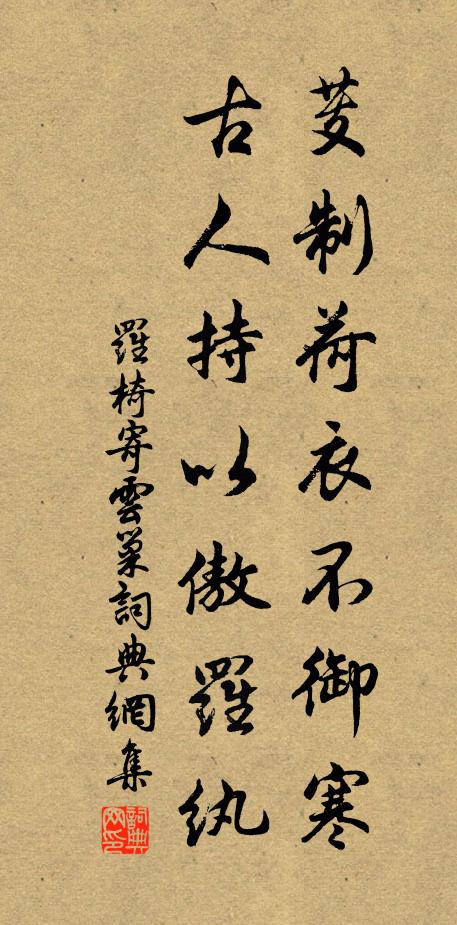 芰制荷衣不御寒
古人持以傲羅紈
羅椅寄雲巢詞典網集
詞典网印